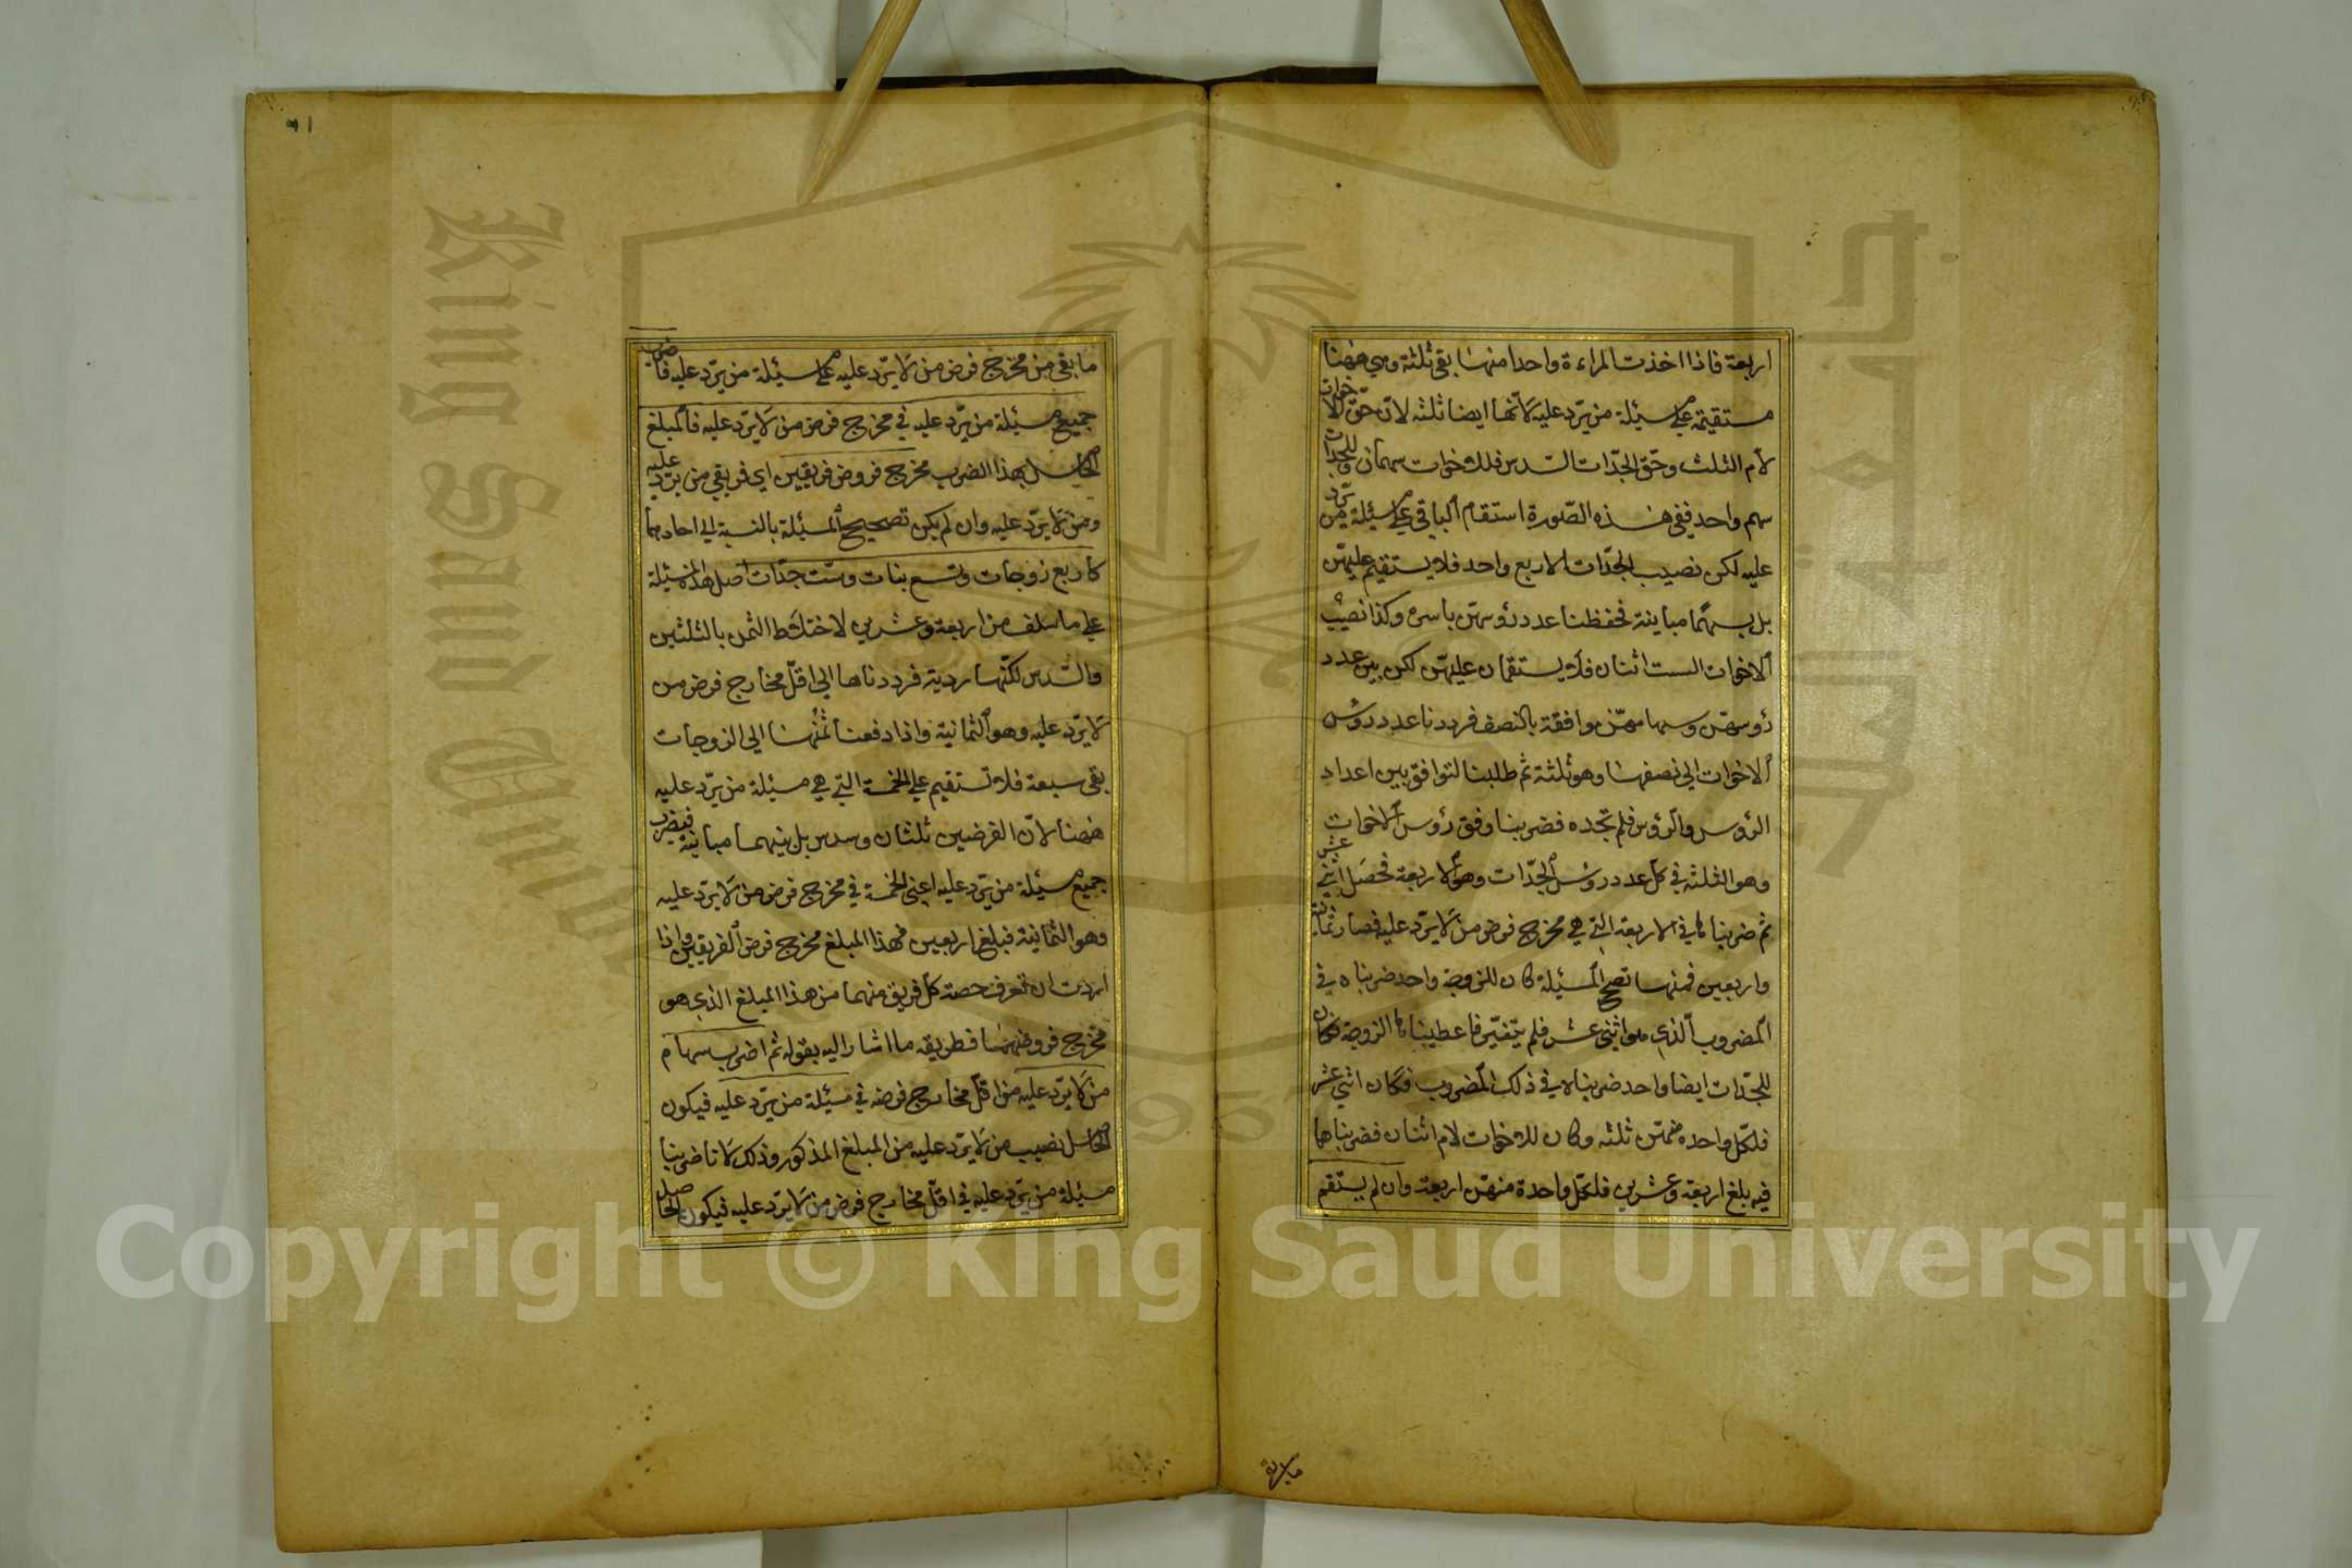 اربعة فاذا اخذت المراءة واحدا منها بقى ثلثة وهي ههنا
مستقيمة على مسئلة من يرد عليه لانها ايضا ثلثه لان حق الاخوات
لام الثلث وحق الجدات السدس فللاخوات سهمان وللجدات
سهم واحد ففى هذه الصورة استقام الباقى على مسئلة من يرد
عليه لكن نصيب الجدات الاربع واحد فلا يستقيم عليهن
بل بينهما مباينة فحفظنا عدد رؤسهن باسره وكذا نصيب
الاخوات الست اثنان فلا يستقمان عليهن لكن بين عدد
رؤسهن وسهامهن موافقة بالنصف فرددنا عدد رؤس
الاخوات الى نصفها وهو ثلثة ثم طلبنا التوافق بين اعداد
الرؤس والرؤس فلم نجده فضربنا وفق رؤس الاخوات
وهو الثلثه في كل عدد رؤس الجدات وهو الاربعة فحصل اثنى عشر
ثم ضربناها في الاربعة التي هي مخرج فرض من لا يرد عليه فصار ثمانية
واربعين فمنها تصح المسئلة كان للزوجة واحد ضربناه في
المضروب الذي هو اثنى عشر فلم يتغير فاعطيناها الزوجة فكان
للجدات ايضا واحد ضربناه في ذلك المضروب فكان اثنى عشر
فلكل واحده منهن ثلثه وكان للاخوات لام اثنان فضربناهما
فيه بلغ اربعة وعشرين فلكل واحدة منهن اربعة وان لم يستقم
ما بقى من مخرج فرض من لا يرد عليه على مسئلة من يرد عليه فاضرب
جميع مسئلة من يرد عليه في مخرج فرض من لا يرد عليه فالمبلغ
الحاصل بهذا الضرب مخرج فروض فريقين اي فريقي من يرد عليه
ومن لا يرد عليه وان لم يكن تصحيح المسئلة بالنسبة الى احادهما
كاربع زوجات وتسع بنات وست جدات اصل هذه المسئلة
على ما سلف من اربعة وعشرين لاختلاط الثمن بالثلثين
والسدس لكنها ردية فرددناها الى اقل مخارج فرض من
لا يرد عليه وهو الثمانية واذا دفعنا ثمنها الى الزوجات
بقى سبعة فلا تستقيم على الخمسة التي هي مسئلة من يرد عليه
ههنا لان الفرضين ثلثان وسدس بل بينهما مباينة فيضرب
جميع مسئلة من يرد عليه اعنى الخمسة في مخرج فرض من لا يرد عليه
وهو الثمانية فبلغ اربعين فهذا المبلغ مخرج فرض الفريقين واذا
اردت ان تعرف حصة كل فريق منهما من هذا المبلغ الذي هو
مخرج فروضهما فطريقه ما اشار اليه بقوله ثم اضرب سهام
من لا يرد عليه من اقل مخارج فرضه في مسئلة من يرد عليه فيكون
الحاصل نصيب من لا يرد عليه من المبلغ المذكور وذلك لانا ضربنا
مسئلة من يرد عليه في اقل مخارج فرض من لا يرد عليه فيكون الحاصل
Copyright © King Saud University